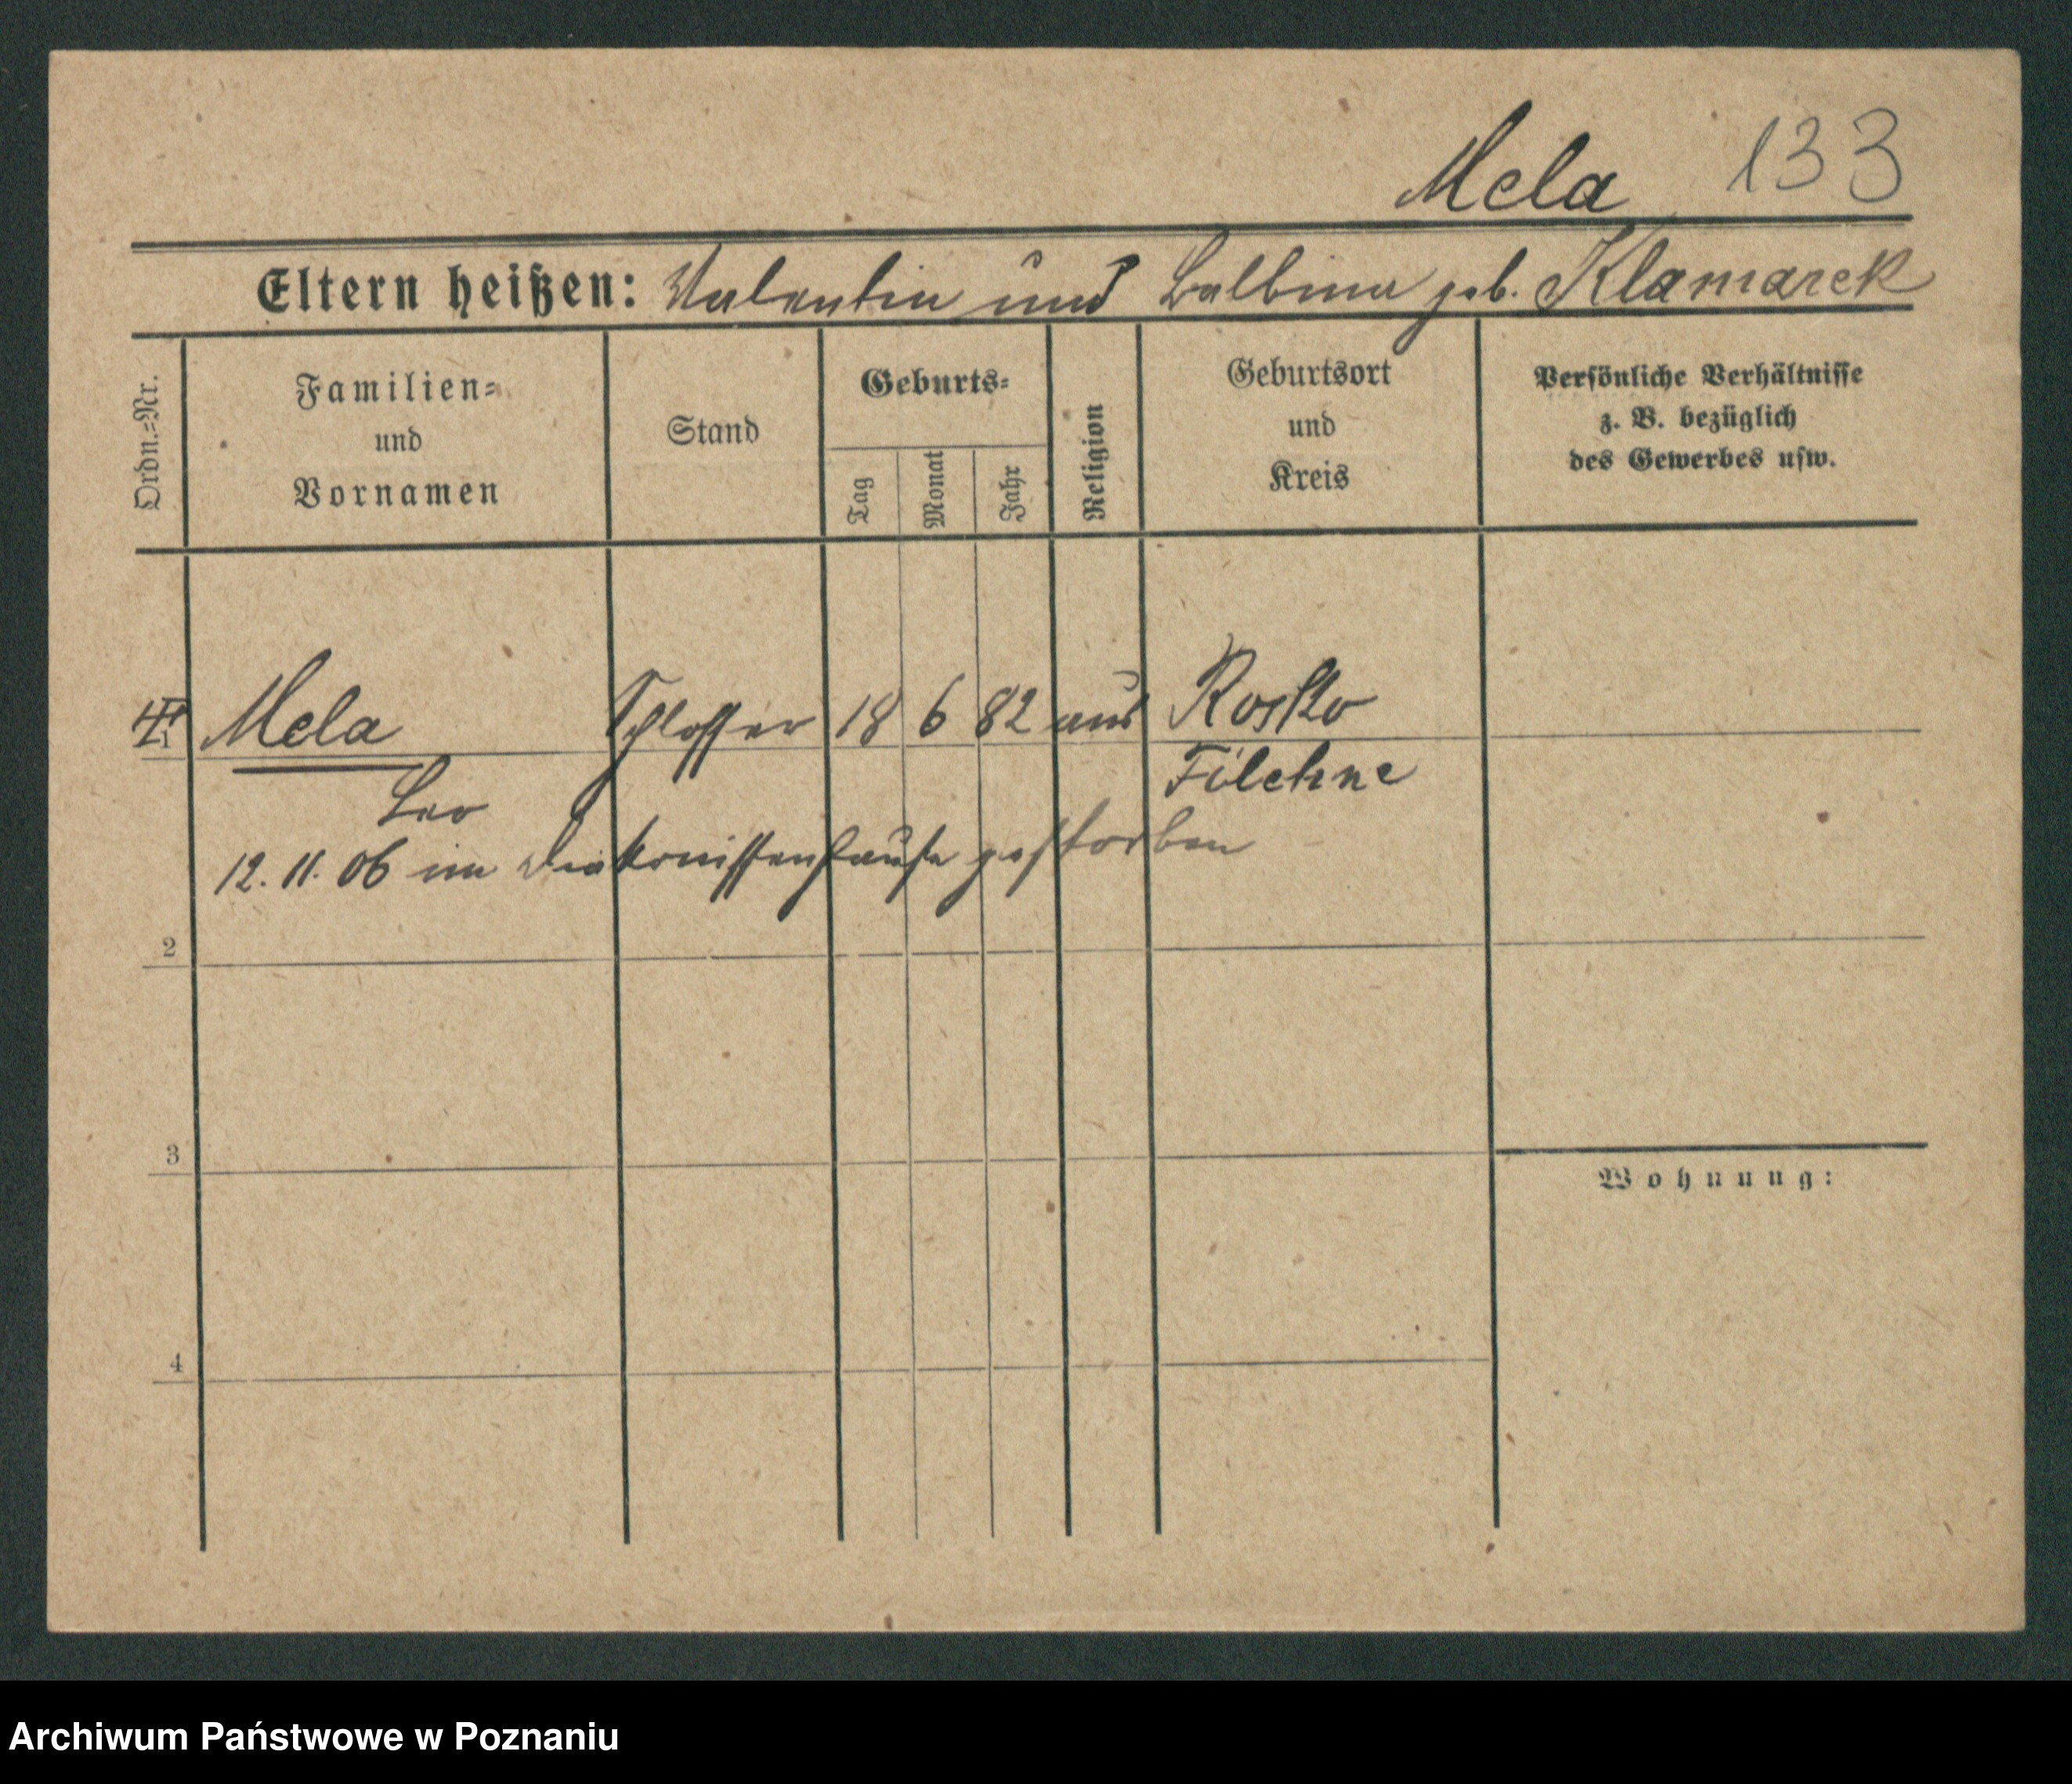 Mela 133
Eltern heißen: Valentin und Balbina geb. Klamarek
Ordn.=Nr.
Familien=
und
Vornamen
Stand
Geburts=
Tag
Monat
Jahr
Religion
Geburtsort
und
Kreis
Persönliche Verhältnisse
z. B. bezüglich
des Gewerbes usw.
Mela Schlosser 18 6 82 aus Rosko
Filehne
Leo
12. 11. 06 im Diakonissenhause gestorben
2
3
Wohnung:
4
Archiwum Państwowe w Poznaniu